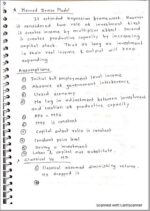 * Harrod Domar Model
It extended keynesian framework. Keynes
considered two role of investment. First
it creates income by multiplier effect. Second
it creates productive capacity by increasing
capital stock. Thus as long as investment
is there real income & output will keep
expanding
Assumptions
① Initial full employment level income
② Absence of government interference
③ Closed economy
④ No lag in adjustment between investment
and creation of productive capacity
⑤ APS = MPS
⑥ MPS is constant
⑦ Capital output ratio is constant
⑧ Constant price level
⑨ Saving = investment
⑩ Labor & capital not substitute.
Classical assumed diminishing returns.
HD dropped it
Scanned with CamScanner